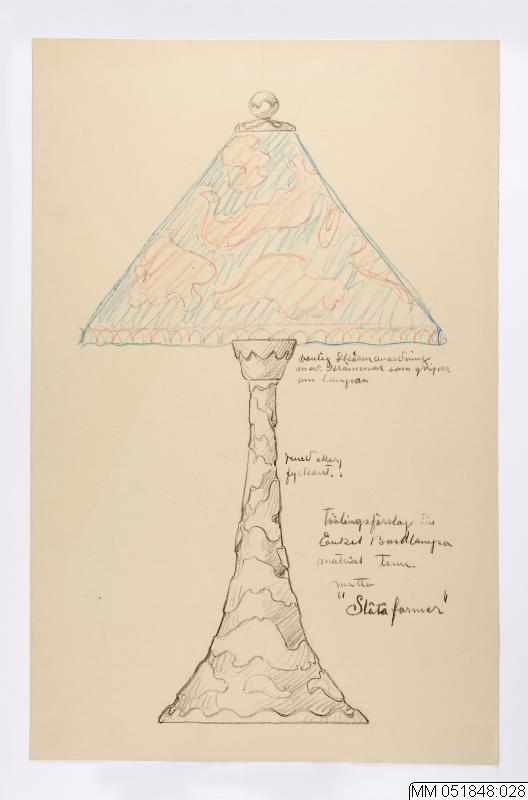 vanlig Skärmanordning
med klämmor som griper
om lampan
rund eller
fyrkant.
Tävlingsförslag till
Enkel Bordlampa
material Tenn.
motto
"Släta former"
MM 051848:028